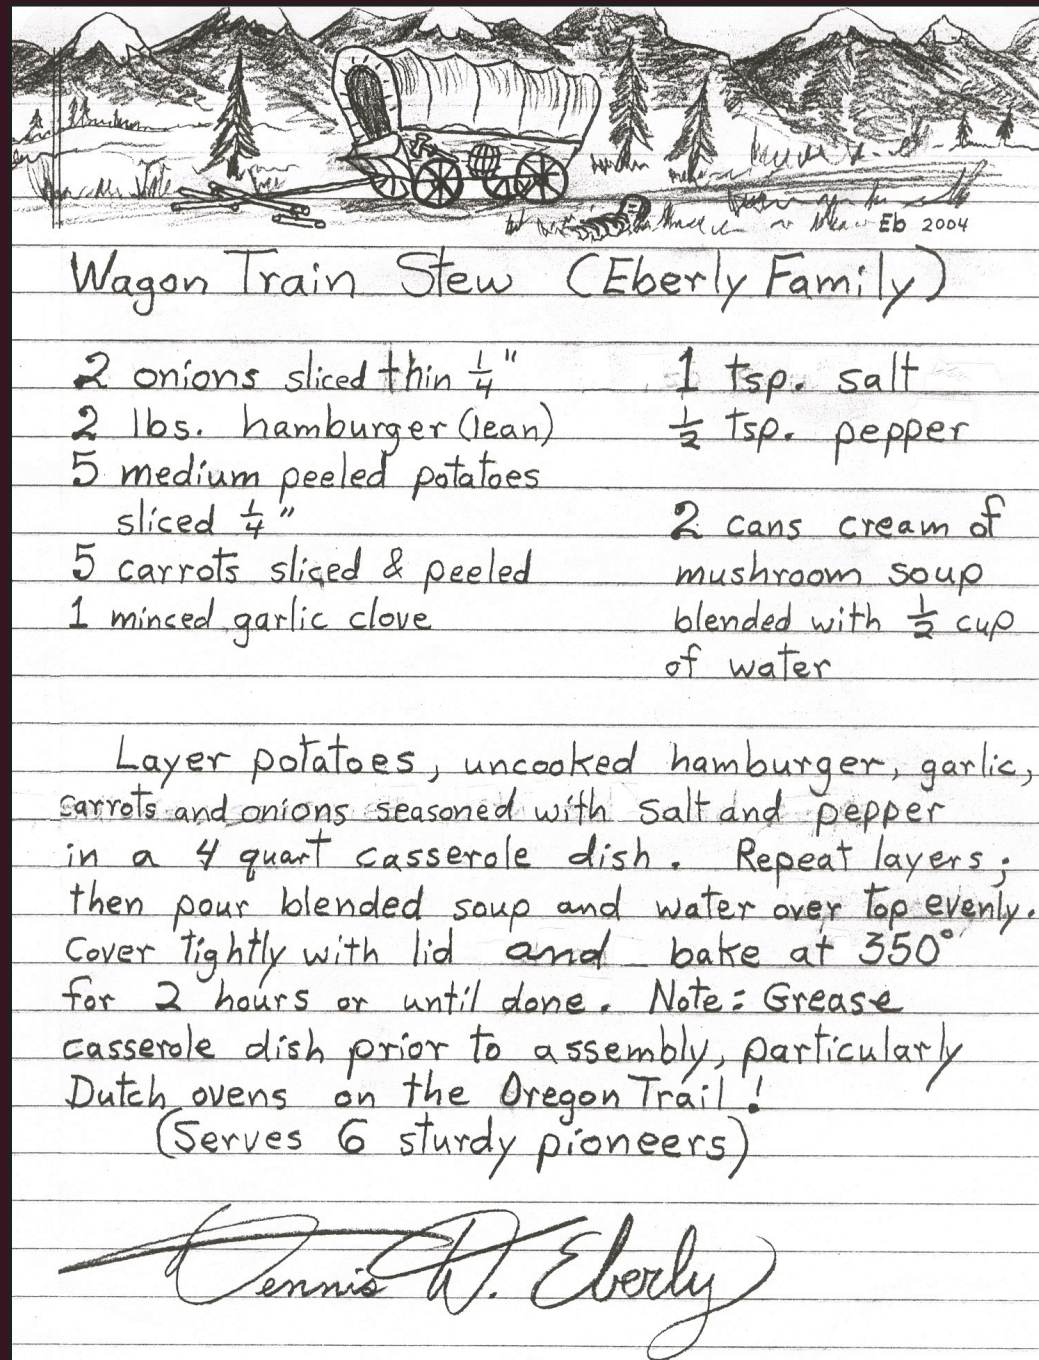 Eb 2004
Wagon Train Stew (Eberly Family)
2 onions sliced thin 1/4"
2 lbs. hamburger (lean)
5 medium peeled potatoes
sliced 1/4"
5 carrots sliced & peeled
1 minced garlic clove
1 tsp. salt
1/2 tsp. pepper
2 cans cream of
mushroom soup
blended with 1/2 cup
of water
Layer potatoes, uncooked hamburger, garlic,
carrots and onions seasoned with salt and pepper
in a 4 quart casserole dish. Repeat layers;
then pour blended soup and water over top evenly.
Cover tightly with lid and bake at 350°
for 2 hours or until done. Note: Grease
casserole dish prior to assembly, particularly
Dutch ovens on the Oregon Trail!
(Serves 6 sturdy pioneers)
Dennis W. Eberly